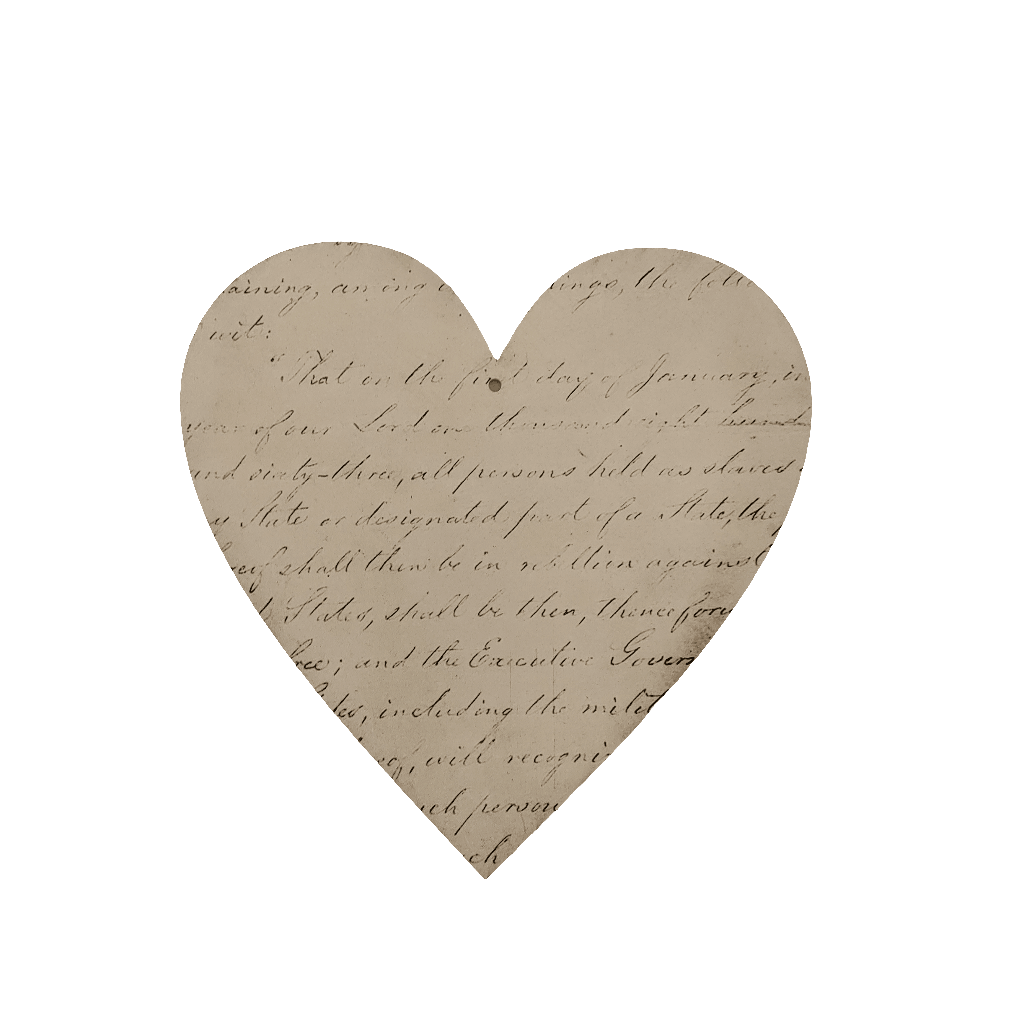 aining, among ings, the follo
wit:
"That on the first day of January, in
year of our Lord one thousand eight hundr
and sixty-three, all persons held as slaves
y State or designated part of a State, the
reof shall then be in rebellion against
States, shall be then, thencefor
free; and the Executive Govern
tes, including the milit
reof, will recogni
uch person
ch